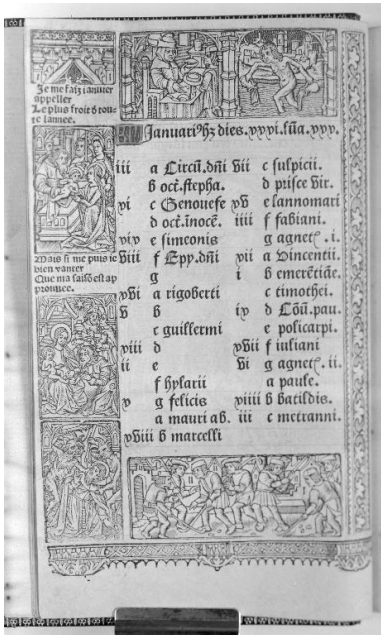 Je me faiz ianuier
appeller
Le plus froit d tou-
te lannee.
Mais si me puis ie
bien vanter
Que ma saisō est ap
prouuee.
KL Januariꝰ hꝫ dies. xxxi. lūa. xxx.
iii a Circū. dn̄i
b oct̄. stepha.
xi c Genouefe
d oct̄. inocē.
xix e simeonis
viii f Epy. dn̄i
g
xvi a rigoberti
v b
c guillermi
xiii d
ii e
f hylarii
x g felicis
a mauri ab.
xviii b marcelli
vii c sulpicii.
d prisce vir.
xv e lannomari
iiii f fabiani.
g agnetꝭ. i.
xii a vincentii.
i b emerētiāe.
c timothei.
ix d Cōū. pau.
e policarpi.
xvii f iuliani
vi g agnetꝭ. ii.
a paule.
xiiii b batildis.
iii c metranni.